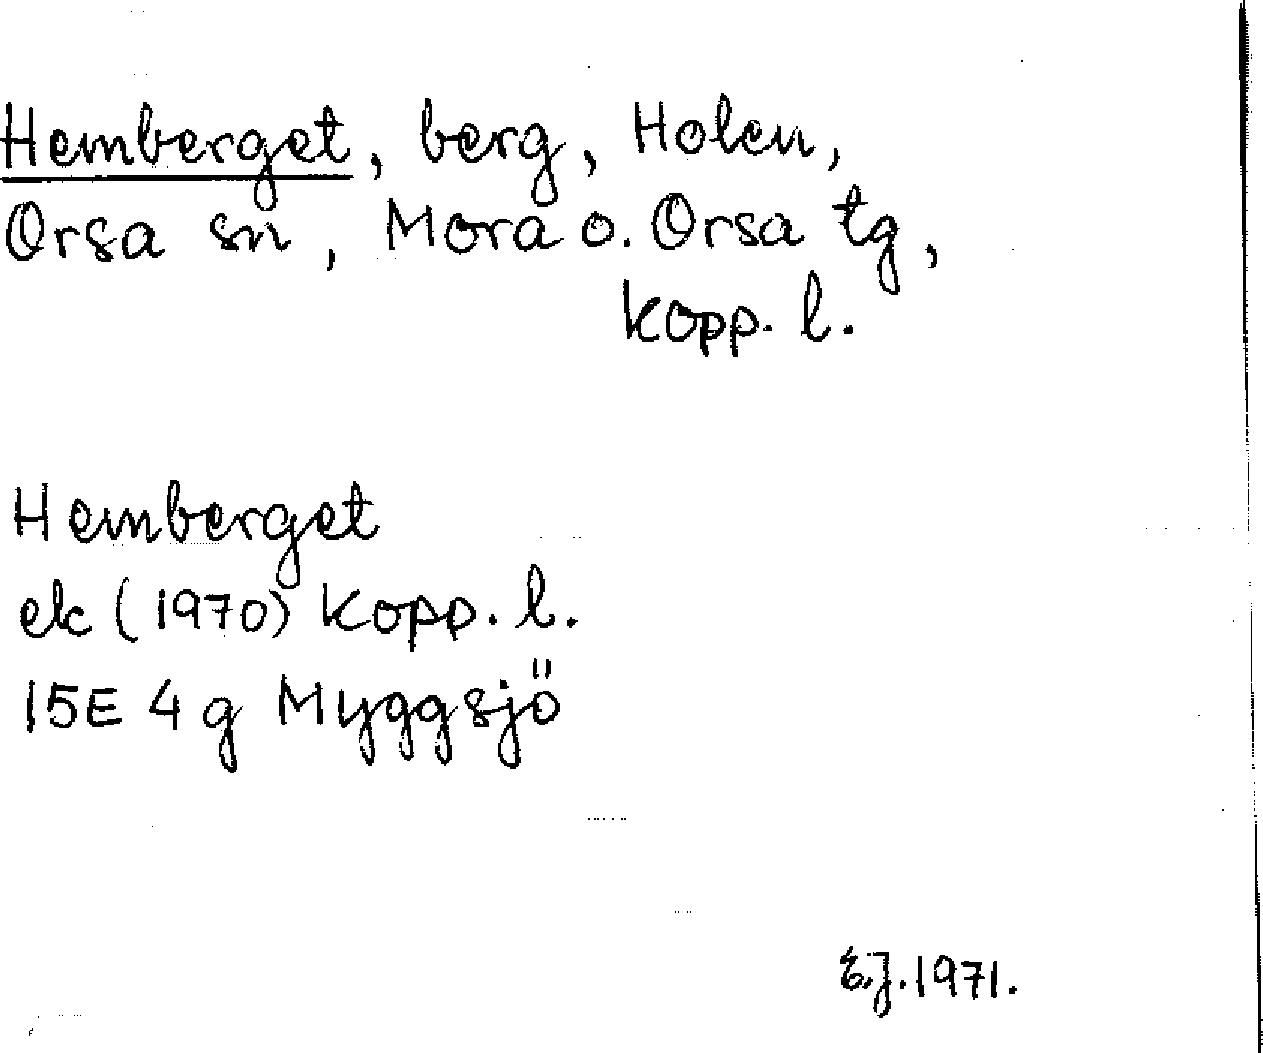 Hemberget, berg, Holen,
Orsa sn, Mora o. Orsa tg,
Kopp. l.
Hemberget
ek (1970) Kopp. l.
15E 4g Myggsjö
E.J. 1971.